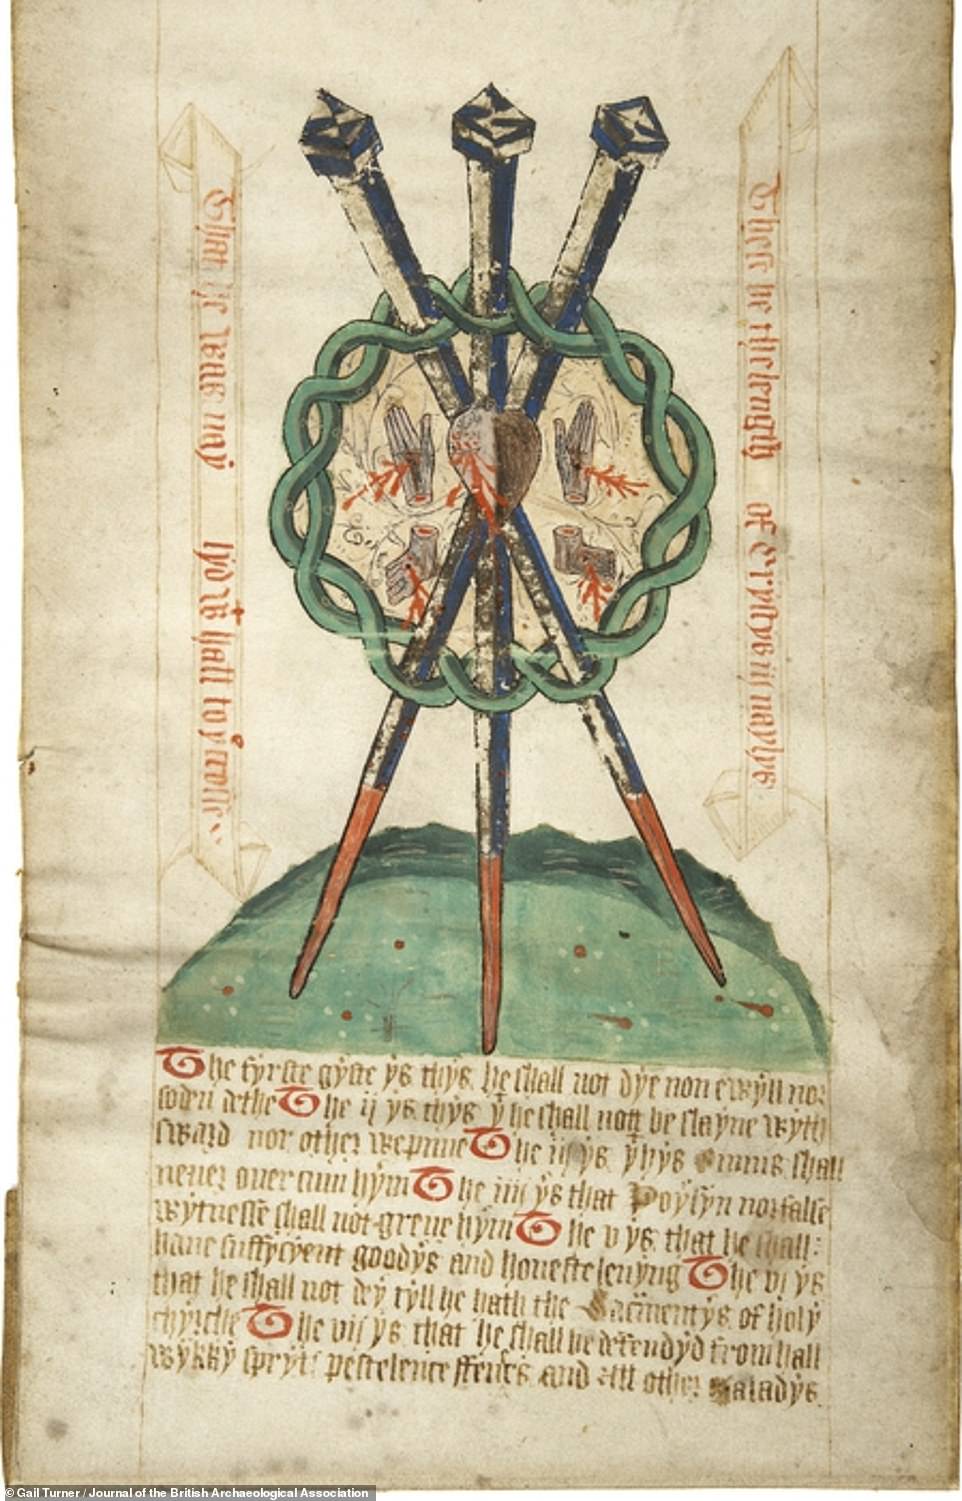 That ye Rode
These be the length of crystys iij naylys
The fyrste gyfte ys thys he shall not dye non ewyll nor
soden dethe The ij ys thys ẏ he shall nott be slayne wyth
sward nor other wepnne The iij ys yhys shall
never over cum hym The iiij ys that Poysyn nor false
wytnesse shall not greve hym The v ys that he shall
have suffycyent goodys and honeste levyng The vi ys
that he shall not dey tyll he hath the Sacmentys of holy
chyrche The vij ys that he shall be defendyd from hall
wykky spryts pestelence ffevers and all other maladys
© Gail Turner / Journal of the British Archaeological Association